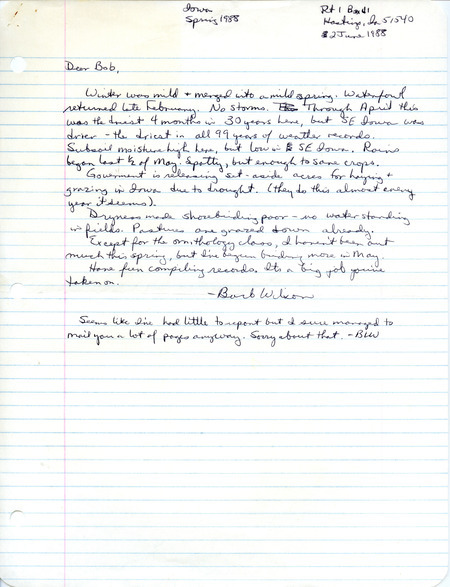 Iowa
Spring 1988
Rt 1 Box 41
Hastings, Ia 51540
2 June 1988
Dear Bob,
Winter was mild + merged into a mild spring. Waterfowl
returned late February. No storms. Through April this
was the driest 4 months in 30 years here, but SE Iowa was
drier - the driest in all 99 years of weather records.
Subsoil moisture high here, but low in SE Iowa. Rains
began last ½ of May. Spotty, but enough to save crops.
Government is releasing set-aside acres for haying +
grazing in Iowa due to drought. (they do this almost every
year it seems).
Dryness made shorebirding poor - no water standing
in fields. Pastures are grazed down already.
Except for the ornithology class, I haven't been out
much this spring, but I've begun birding more in May.
Have fun compiling records. It's a big job you've
taken on.
- Barb Wilson
Seems like I've had little to report but I sure managed to
mail you a lot of pages anyway. Sorry about that. - BLW